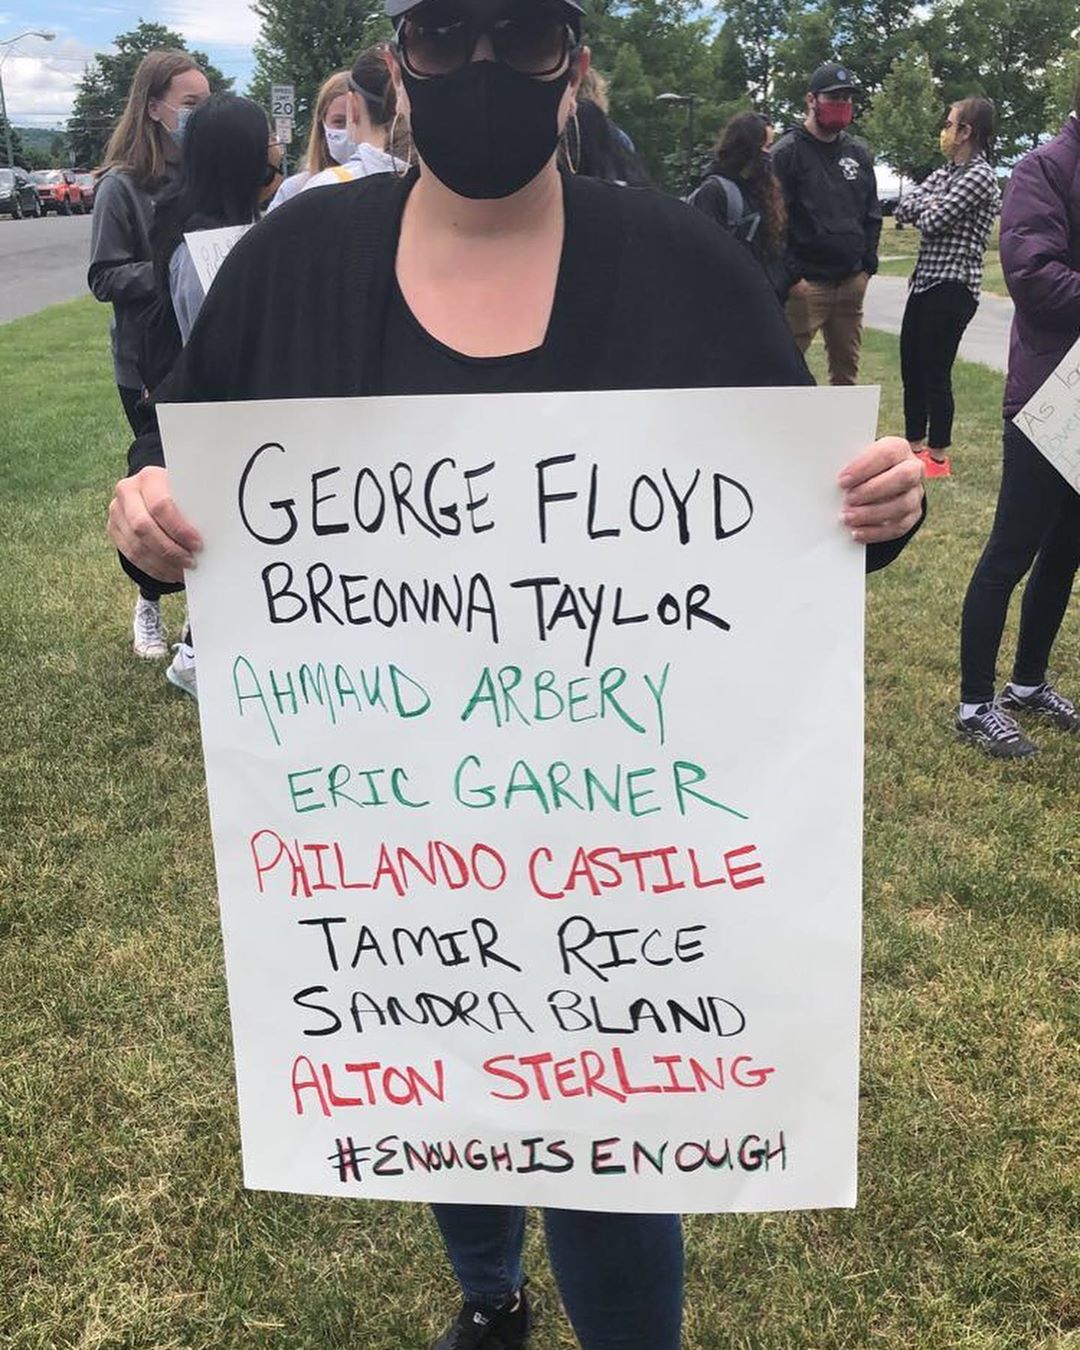 SPEED
LIMIT
20
GEORGE FLOYD
BREONNA TAYLOR
AHMAUD ARBERY
ERIC GARNER
PHILANDO CASTILE
TAMIR RICE
SANDRA BLAND
ALTON STERLING
#ENOUGHISENOUGH
As